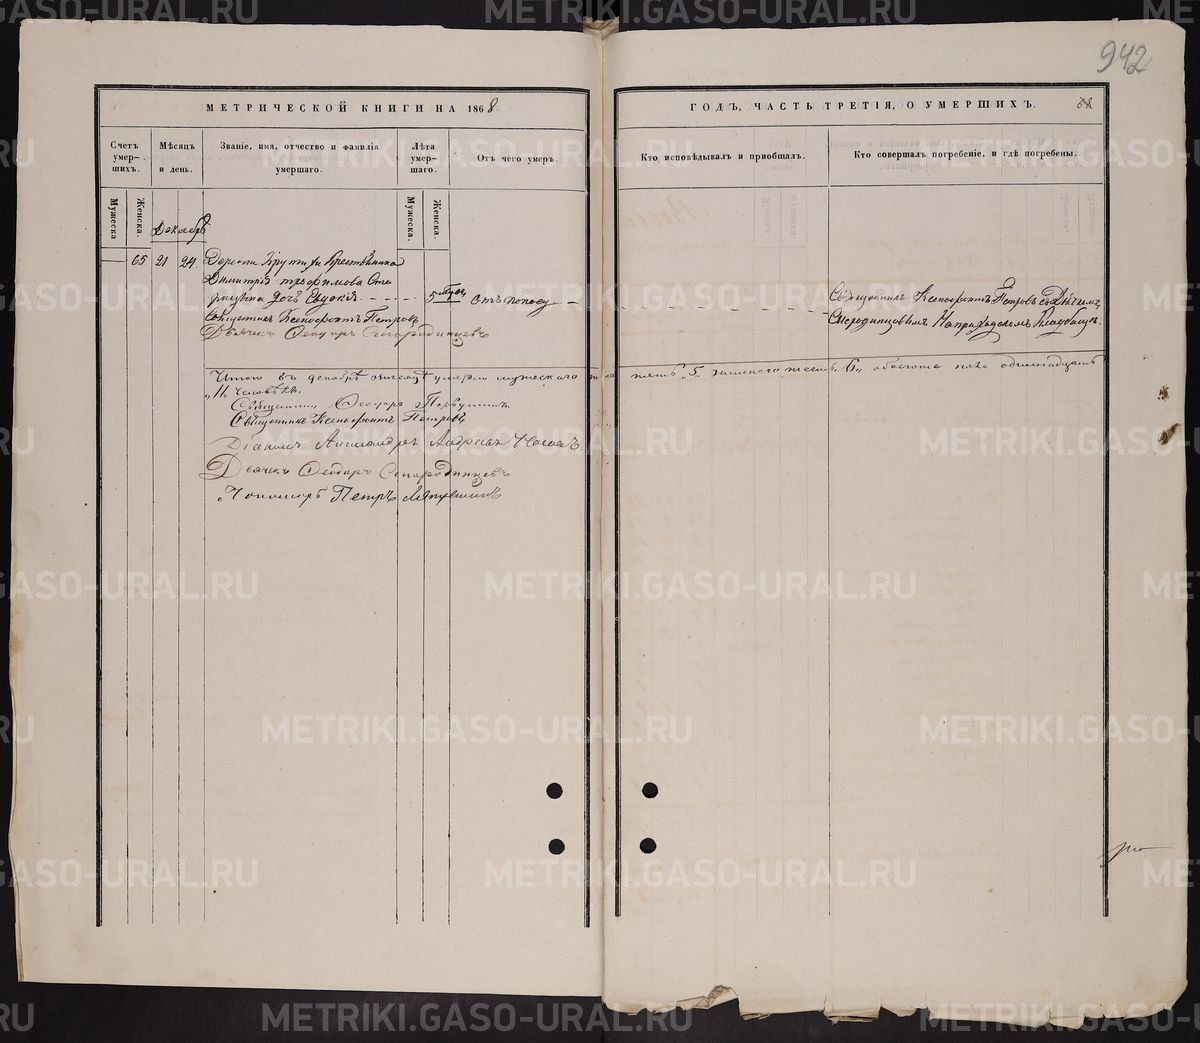 942
МЕТРИЧЕСКОЙ КНИГИ НА 1868
ГОДЪ, ЧАСТЬ ТРЕТІЯ, О УМЕРШИХЪ.
Счетъ умер-шихъ.
Мѣсяцъ и день.
Званіе, имя, отчество и фамилія умершаго.
Лѣта умер-шаго.
Отъ чего умеръ.
Кто исповѣдывалъ и приобщалъ.
Кто совершалъ погребеніе, и гдѣ погребены.
Мужеска
Женска.
Мужеска.
Женска.
Декабрь
65 21 24 Деревни Крутихи Крестьянина
Димитрія Трофимова Ста
рицына дочь Евдокія 5 отъ поносу
Священникъ Ксенофонтъ Петровъ съ Дьячкомъ
на приходскомъ Кладбищѣ.
Священникъ Ксенофонтъ Петровъ
Дьячекъ Ѳеодоръ
Итого въ декабрѣ мѣсяцѣ умерло мужескаго пола пять „5„ женскаго шесть „6„ а обоего пола одиннадцать
„11„ человѣкъ.
Священникъ Ѳеодоръ
Священникъ Ксенофонтъ Петровъ
Діаконъ Александръ Андреевъ
Дьячекъ Ѳеодоръ
Пономарь Петръ Ляпустинъ
METRIKI.GASO-URAL.RU